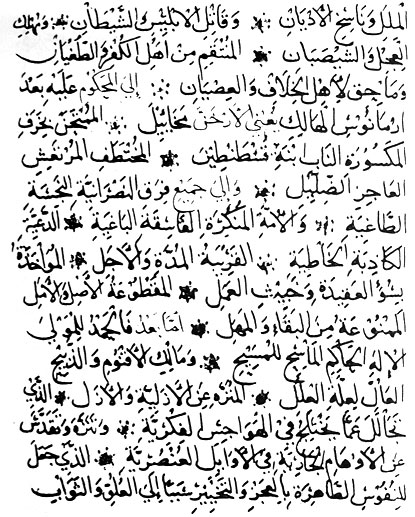 الملل وناسخ الاديان وقاتل الابليس الشيطان ومهلك
العجل والشيصبان المنتقم من اهل الكفر والطغيان
وماحق لاهل الخلاف والعصيان إلى المحكوم عليه بعد
ارمانوس الهالك يعني الارخن ميخائيل المستحق بحرف
المكسورة الناب ابنة قسطنطين المختطف المرتعش
العاجز الضئيل والى جميع فرق النصرانية
الطاغية والامة المنكرة الفاسقة الباغية
الكاذبة الخاطية القريبة المدة والاجل المواخذة
بسؤ العقيدة وخبيث العمل المقطوعة الاصل والامل
الممنوعة من البقاء والمهل اما بعد فالحمد للمولى
الاله الحاكم الماسح للمسيح ومالك الاقنوم والذبيح
العال لعلة العلل المنزه عن الازلية والازل الذي
تجالل عما يختلج في الهواجس الفكرية وتنزه وتقدس
عن الاوهام الحادثة في الاوايل العنصرية الذي جعل
للنفوس الطاهرة بالعجز والتخيير سببا إلى العلو والثواب